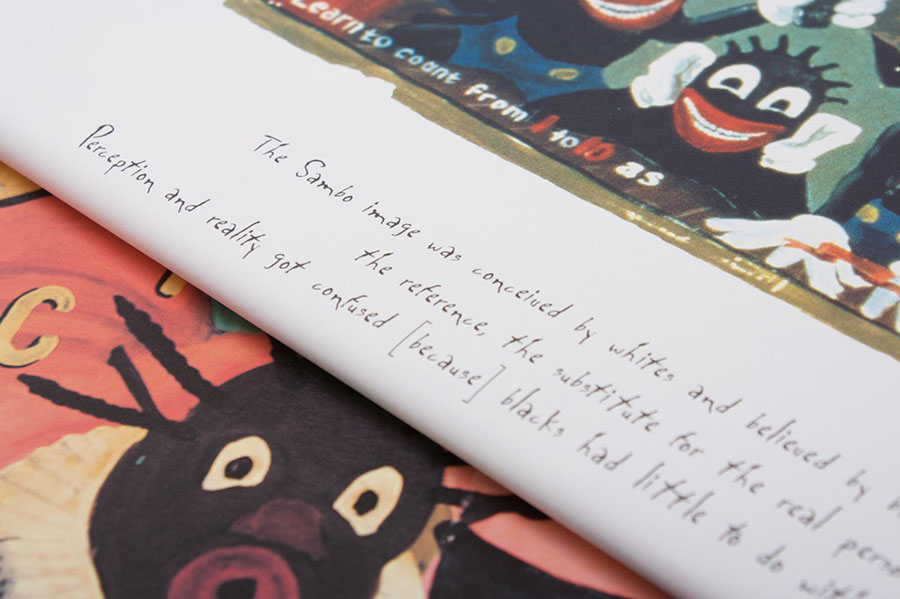 Learn to count from 1 to 10 as
The Sambo image was conceived by whites and believed by b
the reference, the substitute for the real perso
Perception and reality got confused [because] blacks had little to do with
C